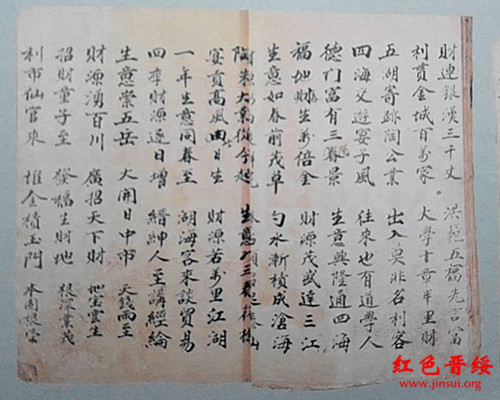 財連銀漢三千丈 洪範五福先言富
利貫金城百萬家 大學十章半里財
五湖寄跡陶公業 出入莫非名利客
四海交遊晏子風 往來也有道學人
德門富有三春景 生意興隆通四海
福地財生萬倍金 財源茂盛達三江
生意如春前茂草 勺水漸積成滄海
陶朱大業從今起 生意
高風由日生 財源若萬里江湖
一年生意同春至 湖海客來談貿易
四季財源逐日增 縉紳人至講經綸
生意崇五岳 大開日中市 天錢雨至
財源湧百川 廣招天下財 地宝雲生
招財童子至 發福生財地 根深葉茂
利市仙官來 堆金積玉門 本固根
红色晋绥
www.jinsui.org